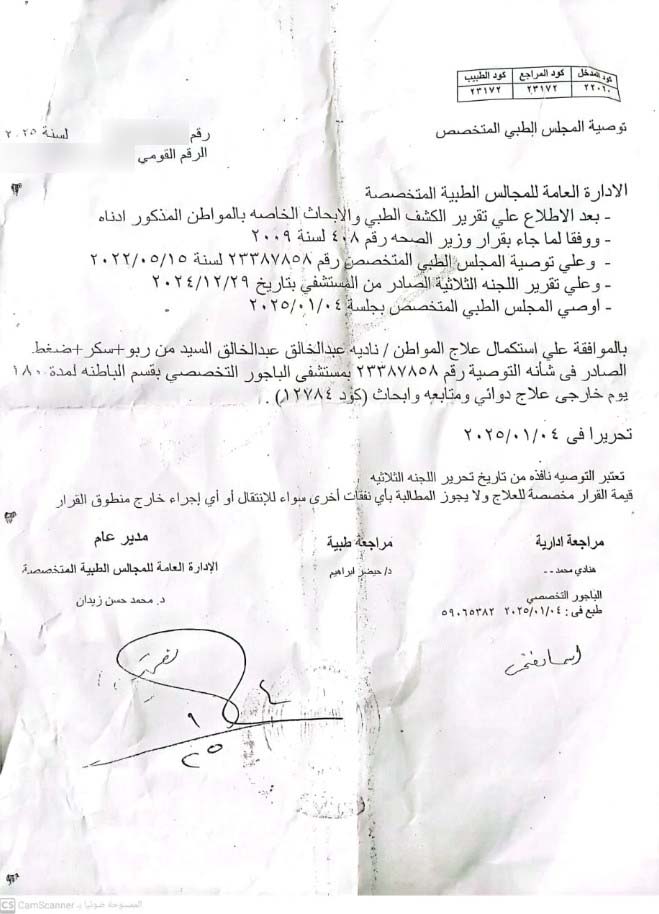 كود المدخل كود المراجع كود الطبيب
٢٢٠١٠ ٢٣١٧٢ ٢٣١٧٢
توصية المجلس الطبي المتخصص
رقم لسنة ٢٠٢٥
الرقم القومي
الادارة العامة للمجالس الطبية المتخصصة
- بعد الاطلاع علي تقرير الكشف الطبي والابحاث الخاصه بالمواطن المذكور ادناه
- ووفقا لما جاء بقرار وزير الصحه رقم ٤٠٨ لسنة ٢٠٠٩
- وعلي توصية المجلس الطبي المتخصص رقم ٢٣٣٨٧٨٥٨ لسنة ٢٠٢٢/٠٥/١٥
- وعلي تقرير اللجنه الثلاثية الصادر من المستشفي بتاريخ ٢٠٢٤/١٢/٢٩
- اوصي المجلس الطبي المتخصص بجلسة ٢٠٢٥/٠١/٠٤
بالموافقة علي استكمال علاج المواطن / ناديه عبدالخالق عبدالخالق السيد من ربو+سكر+ضغط
الصادر فى شأنه التوصية رقم ٢٣٣٨٧٨٥٨ بمستشفى الباجور التخصصي بقسم الباطنه لمدة ١٨٠
يوم خارجى علاج دوائي ومتابعه وابحاث (كود ١٢٧٨٤) .
تحريرا فى ٢٠٢٥/٠١/٠٤
تعتبر التوصيه نافذه من تاريخ تحرير اللجنه الثلاثيه
قيمة القرار مخصصة للعلاج ولا يجوز المطالبة بأي نفقات أخرى سواء للإنتقال أو أي إجراء خارج منطوق القرار
مراجعة ادارية مراجعة طبية مدير عام
هنادي محمد -- د/ خيضر ابراهيم الإدارة العامة للمجالس الطبية المتخصصة
د. محمد حسن زيدان
الباجور التخصصي
طبع فى : ٢٠٢٥/٠١/٠٤ ٥٩٠٦٥٣٨٢
٤
١
٢٥
الممسوحة ضوئيا بـ CamScanner
CS